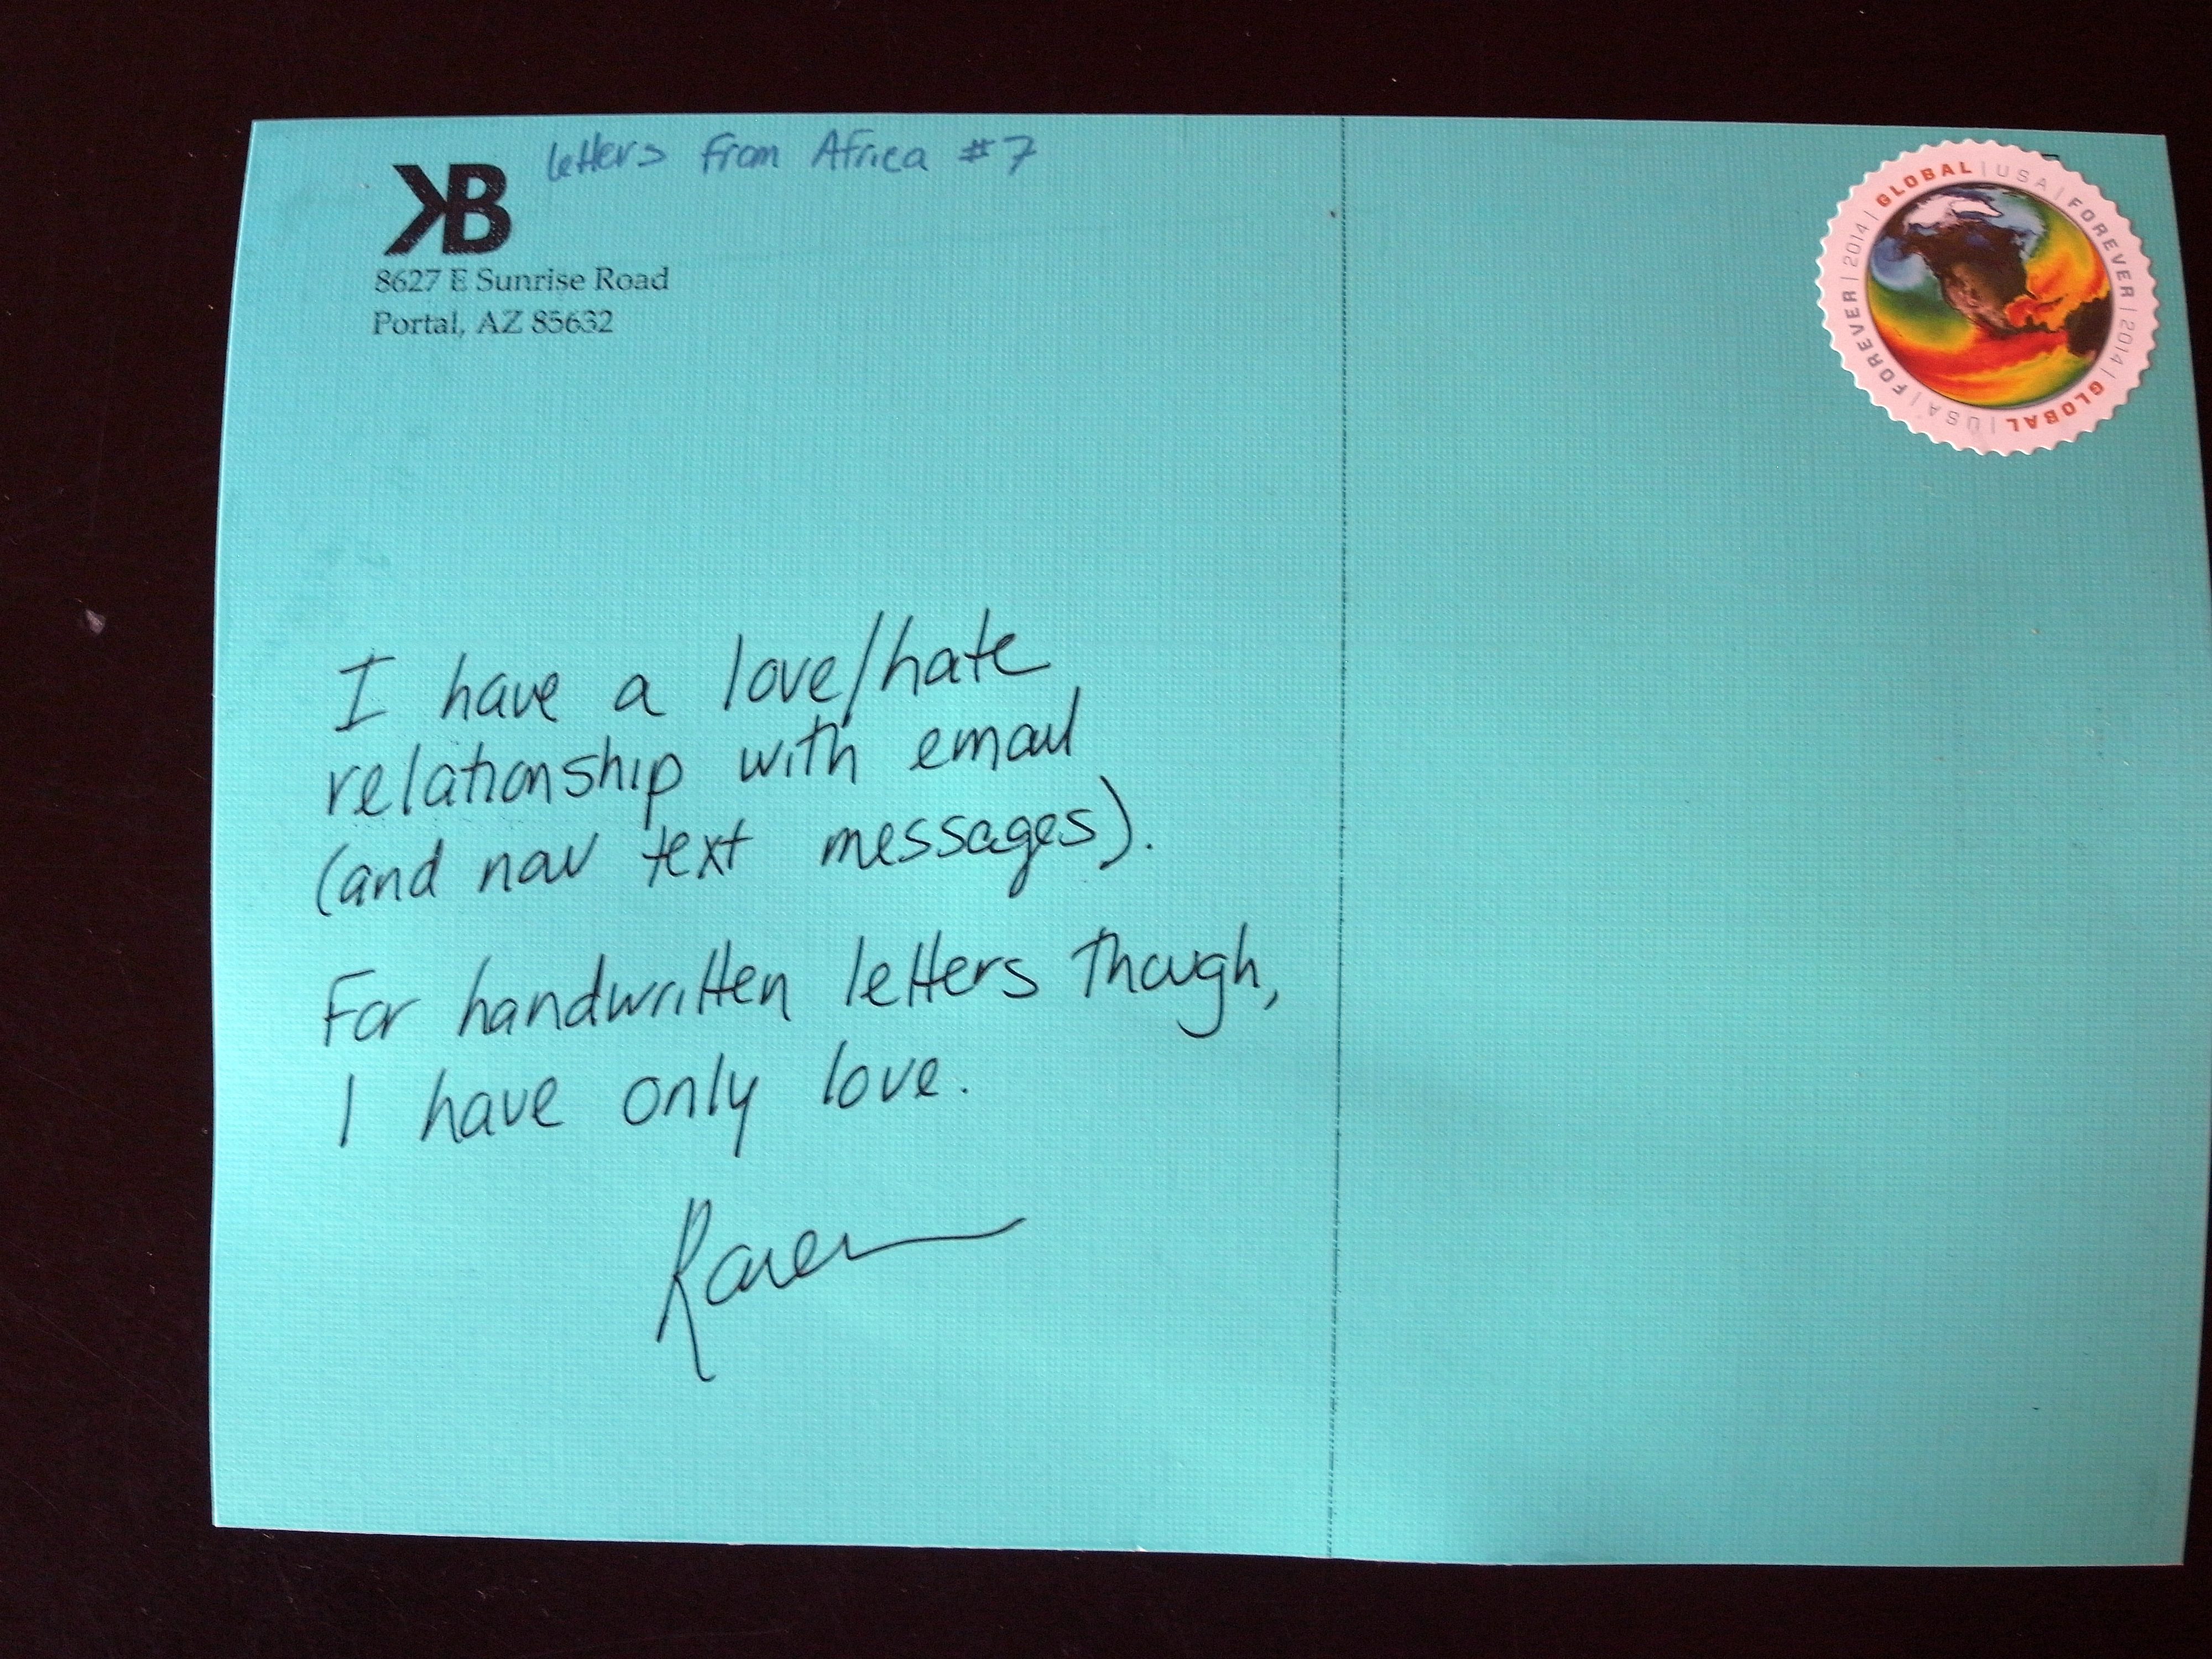 letters from Africa #7
KB
8627 E Sunrise Road
Portal, AZ 85632
GLOBAL | USA | FOREVER | 2014 | GLOBAL | USA | FOREVER | 2014 |
I have a love/hate
relationship with email
(and now text messages).
For handwritten letters though,
I have only love.
Karen